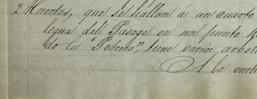 2 Huertas, que se hallan á un cuarto
legua del Pasage en un punto
do la "Pedrera", tiene varios arbole
A la vuelta